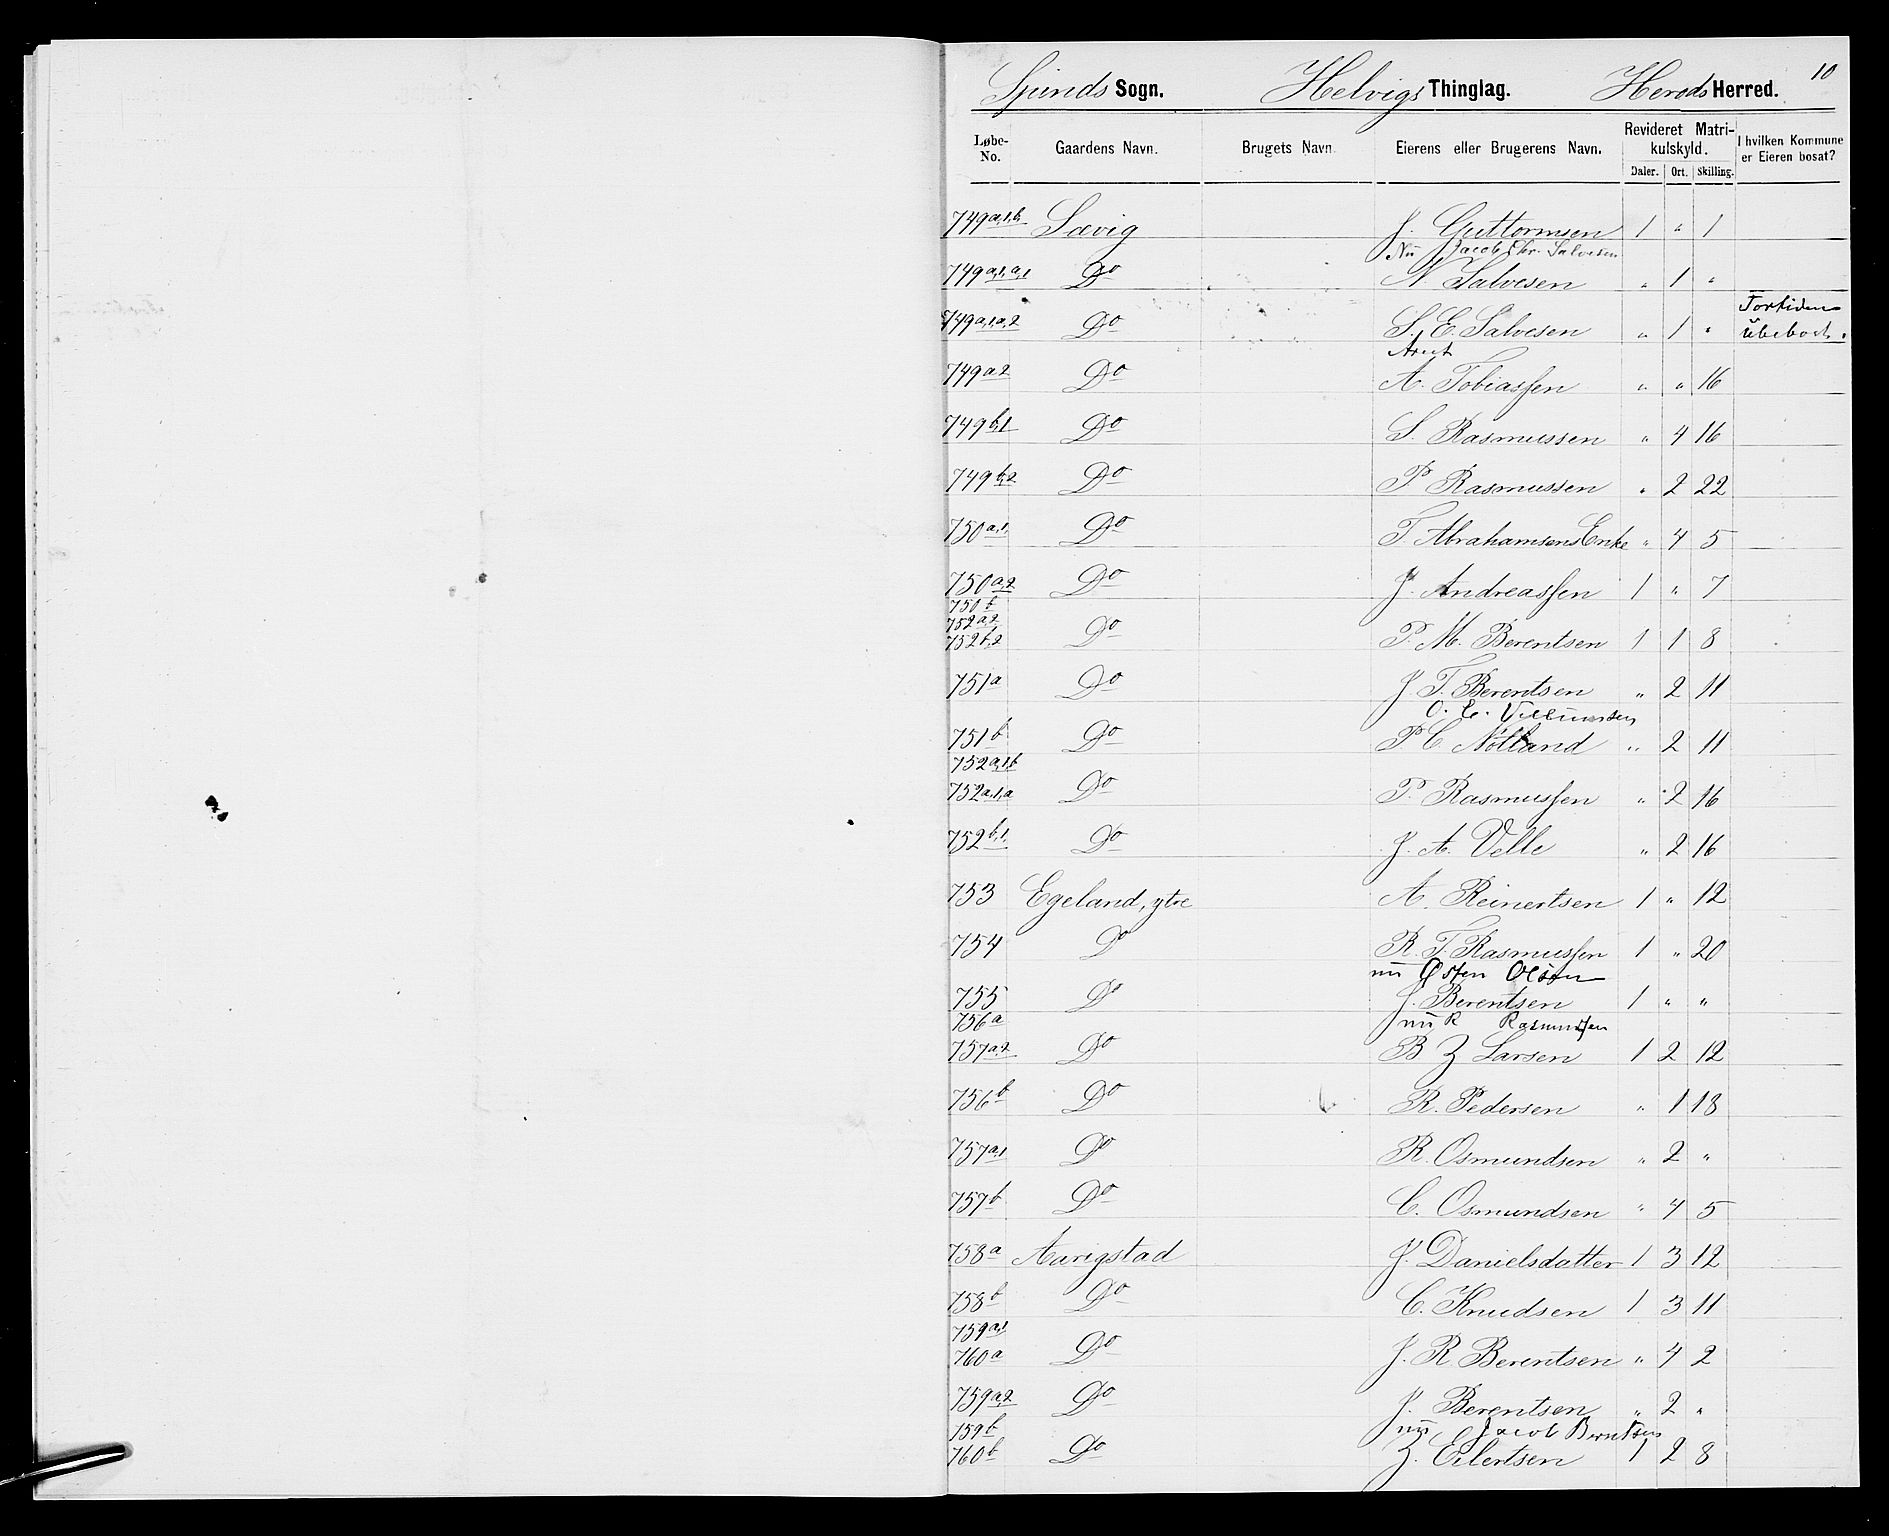 10
Spinds Sogn. Helvigs Thinglag. Herods Herred.
Løbe-No. Gaardens Navn. Brugets Navn. Eierens eller Brugerens Navn. Revideret Matrikulskyld. Daler. Ort. Skilling. I hvilken Kommune er Eieren bosat?
749 a,1,b Sævig J. Guttormsen 1 " 1
Nu Jacob Chr. Salvesen
749 a,1,a,1 Do N Salvesen " 1 "
749 a,1,a,2 Do S. E. Salvesen " 1 " Fortiden ubeboet.
749 a2 Do A. Tobiassen " " 16
749 b,1 Do S. Rasmussen " 4 16
749 b,2 Do P. Rasmussen " 2 22
750 a,1, Do T. Abrahamsens Enke " 4 5
750 a,2 Do J. Andreassen 1 " 7
750 b
752 a,2
752 b,2 Do P. M. Berentsen 1 1 8
751 a Do J. T. Berentsen " 2 11
751 b Do P C Nötland " 2 11
752 a,1,b
752 a,1,a Do P. Rasmussen " 2 16
752 b,1, Do J. A. Velle " 2 16
753 Egeland, ytre A. Reinertsen 1 " 12
754 Do R. T. Rasmussen 1 " 20
nu Østen Olsen
755 Do J. Berentsen 1 " "
756 a nu R Rasmussen
757 a,2 Do B Z Larsen 1 2 12
756 b Do R. Pedersen " 1 18
757 a,1 Do R. Osmundsen " 2 "
757 b Do C. Osmundsen " 4 5
758 a Aarigstad J. Danielsdatter 1 3 12
758 b Do C. Knudsen 1 3 11
759 a,1
760 a Do J. R Berentsen " 4 2
759 a,2 Do J. Berentsen " 2 "
759 b nu Jacob Berntsen
760 b Do Z. Eilertsen 1 2 8